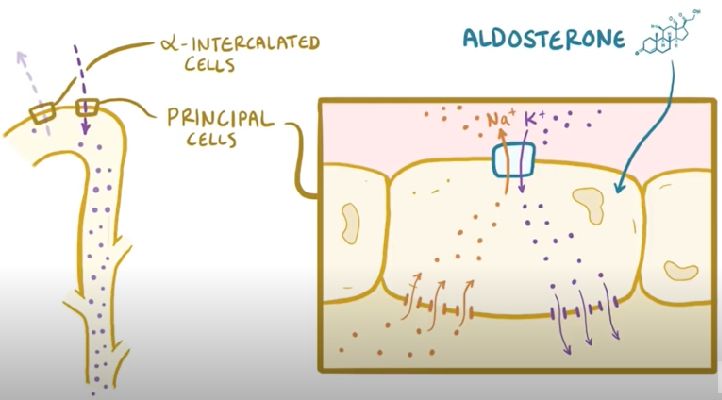 α-INTERCALATED
CELLS
PRINCIPAL
CELLS
ALDOSTERONE
Na⁺
K⁺